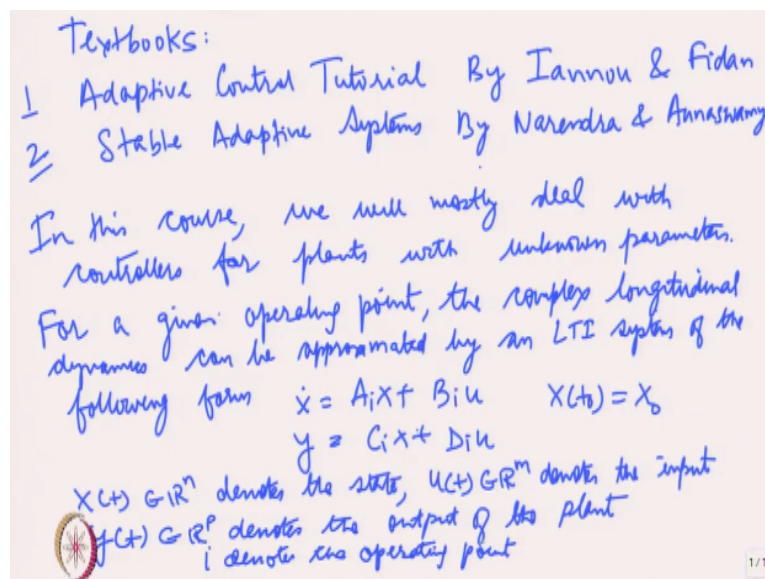 Textbooks:
1 Adaptive Control Tutorial By Iannou & Fidan
2 Stable Adaptive Systems By Narendra & Annaswamy
In this course, we will mostly deal with
controllers for plants with unknown parameters.
For a given operating point, the complex longitudinal
dynamics can be approximated by an LTI system of the
following form ẋ = Aᵢx + Bᵢu X(t₀) = X₀
y = Cᵢx + Dᵢu
X(t) ∈ ℝⁿ denotes the state, U(t) ∈ ℝᵐ denotes the input
y(t) ∈ ℝᵖ denotes the output of the plant
i denotes the operating point
1/1